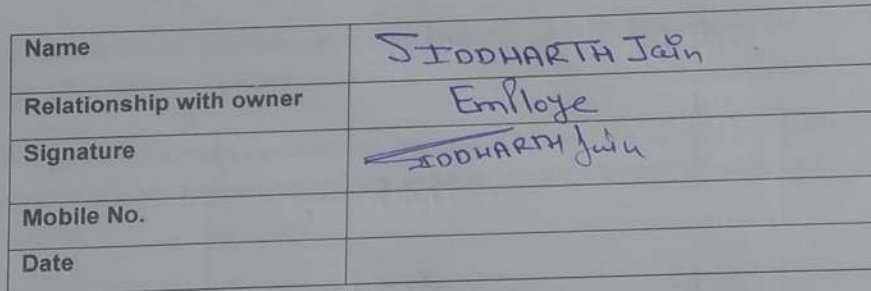 Name SIDDHARTH Jain
Relationship with owner Employe
Signature SIDDHARTH Jain
Mobile No.
Date